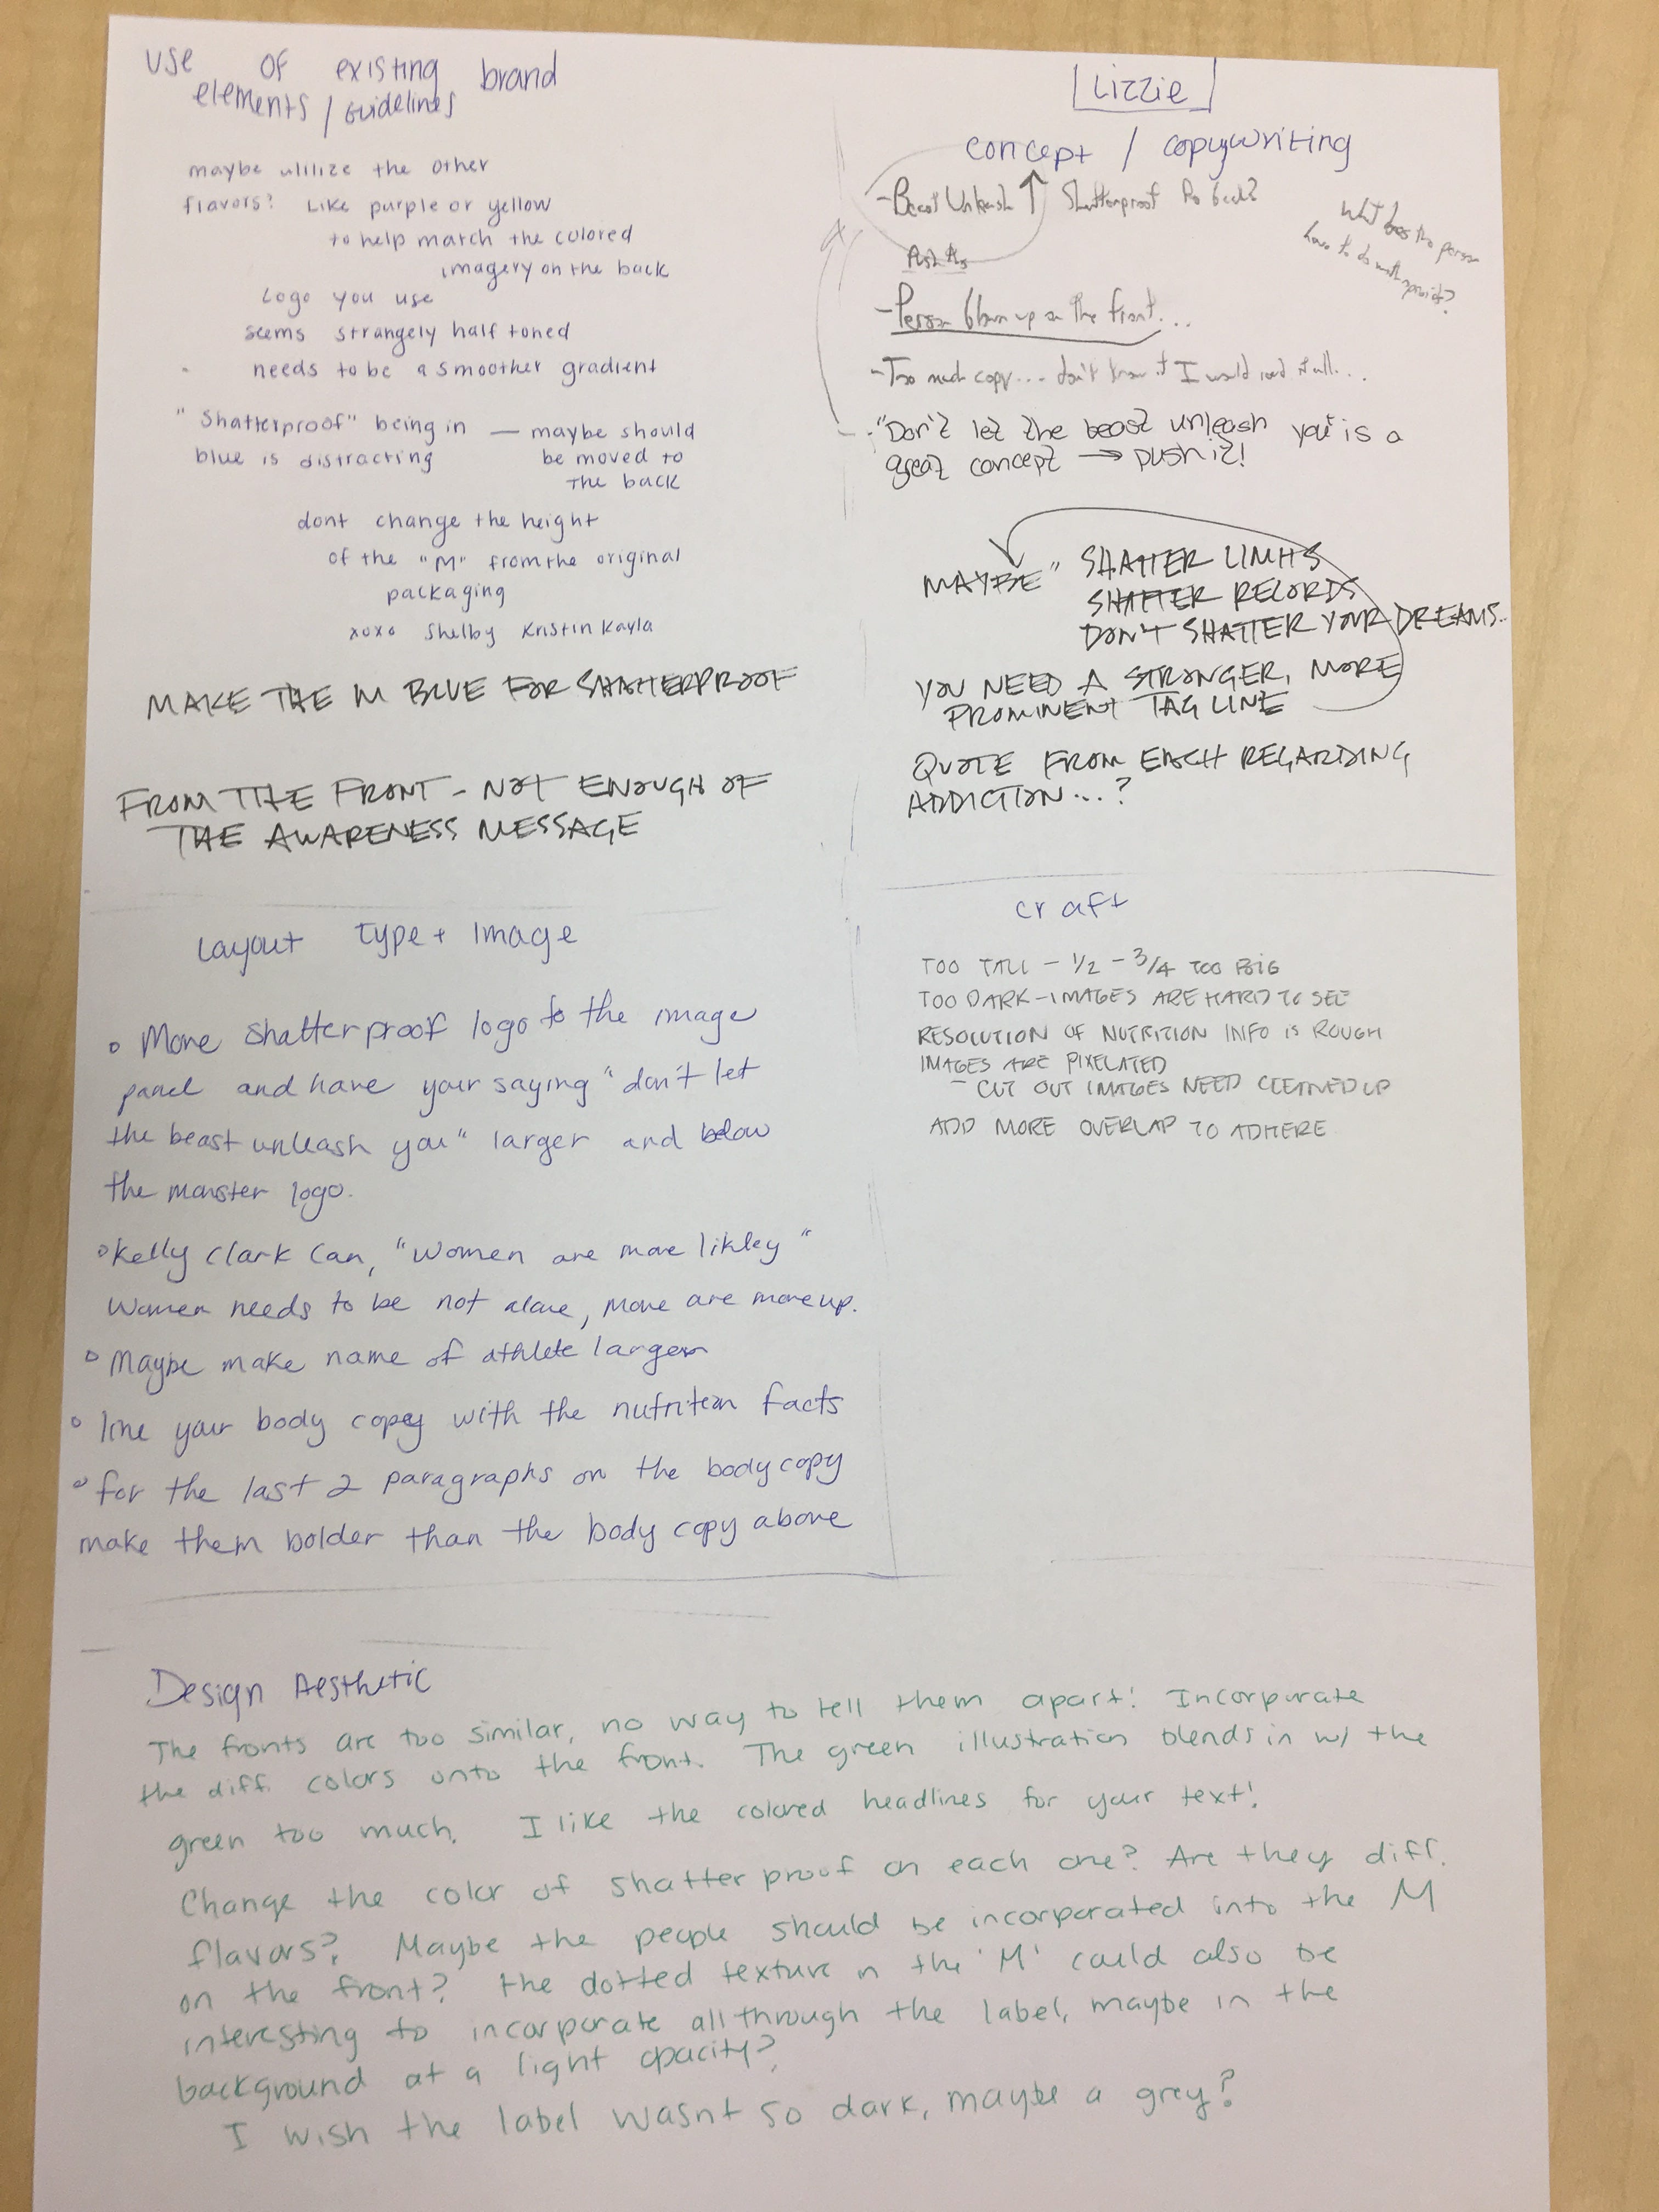 use of existing brand
elements / guidelines
maybe utilize the other
flavors? Like purple or yellow
to help match the colored
imagery on the back
Logo you use
seems strangely half toned
needs to be a smoother gradient
"Shatterproof" being in — maybe should
blue is distracting be moved to
the back
dont change the height
of the "M" from the original
packaging
xoxo Shelby Kristin Kayla
MAKE THE M BLUE FOR SHATTERPROOF
FROM THE FRONT - NOT ENOUGH OF
THE AWARENESS MESSAGE
Lizzie
concept / copywriting
- Beast Unleash ↑ Shatterproof
What does the person
have to do with
Push this
- Person blown up on the front...
- Too much copy... don't know if I would read it all...
- "Don't let the beast unleash you" is a
great concept → push it!
MAYBE " SHATTER LIMITS
SHATTER RECORDS
DON'T SHATTER YOUR DREAMS..
YOU NEED A STRONGER, MORE
PROMINENT TAG LINE
QUOTE FROM EACH REGARDING
ADDICTION...?
Layout Type + Image
• Move shatterproof logo to the image
panel and have your saying "don't let
the beast unleash you" larger and below
the monster logo.
• Kelly Clark Can, "Women are more likley"
Women needs to be not alone, move are more up.
• Maybe make name of athlete larger
• line your body copy with the nutrition facts
• for the last 2 paragraphs on the body copy
make them bolder than the body copy above
craft
TOO TALL - 1/2 - 3/4 TOO BIG
TOO DARK - IMAGES ARE HARD TO SEE
RESOLUTION OF NUTRITION INFO IS ROUGH
IMAGES ARE PIXELATED
- CUT OUT IMAGES NEED CLEANED UP
ADD MORE OVERLAP TO ADHERE
Design Aesthetic
The fronts are too similar, no way to tell them apart! Incorporate
the diff. colors onto the front. The green illustration blends in w/ the
green too much. I like the colored headlines for your text!
Change the color of shatterproof on each one? Are they diff.
flavors? Maybe the people should be incorporated into the M
on the front? the dotted texture in the 'M' could also be
interesting to incorporate all through the label, maybe in the
background at a light opacity?
I wish the label wasnt so dark, maybe a grey?